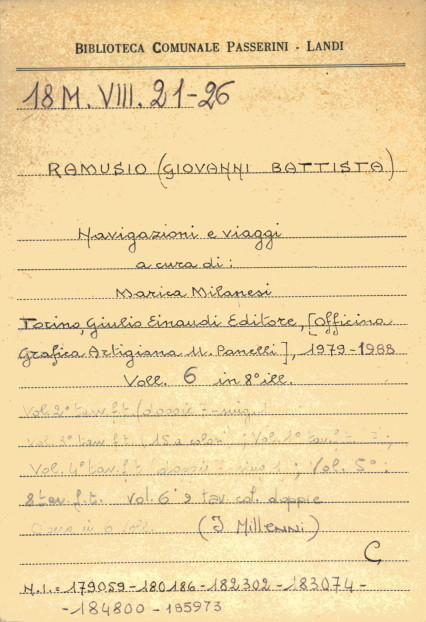 BIBLIOTECA COMUNALE PASSERINI - LANDI
18 M. VIII. 21-26
RAMUSIO (GIOVANNI BATTISTA)
Navigazioni e viaggi
a cura di:
Marica Milanesi
Torino, Giulio Einaudi Editore, [Officina
Grafica Artigiana U. Panelli], 1979-1988
Voll. 6 in 8° ill.
Vol. 2° tav. f.t. (doppie
Vol. 3° tav. f.t. (15 a colori ; Vol. 1° tav. f.t. ;
Vol. 4° tav. f.t. doppie ; Vol. 5°:
8 tav. f.t. Vol. 6° 2 tav. col. doppie
Opera in 6 Voll. (I Millenni)
C
N.I.= 179059-180186-182302-183074-
-184800-195973